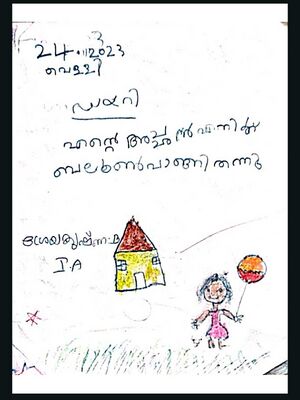 24.11.2023
വെള്ളി
ഡയറി
എന്റെ അപ്പൂപ്പൻ എനിക്ക്
ബലൂൺ വാങ്ങി തന്നു
ശ്രേയകൃഷ്ണ.B
I A